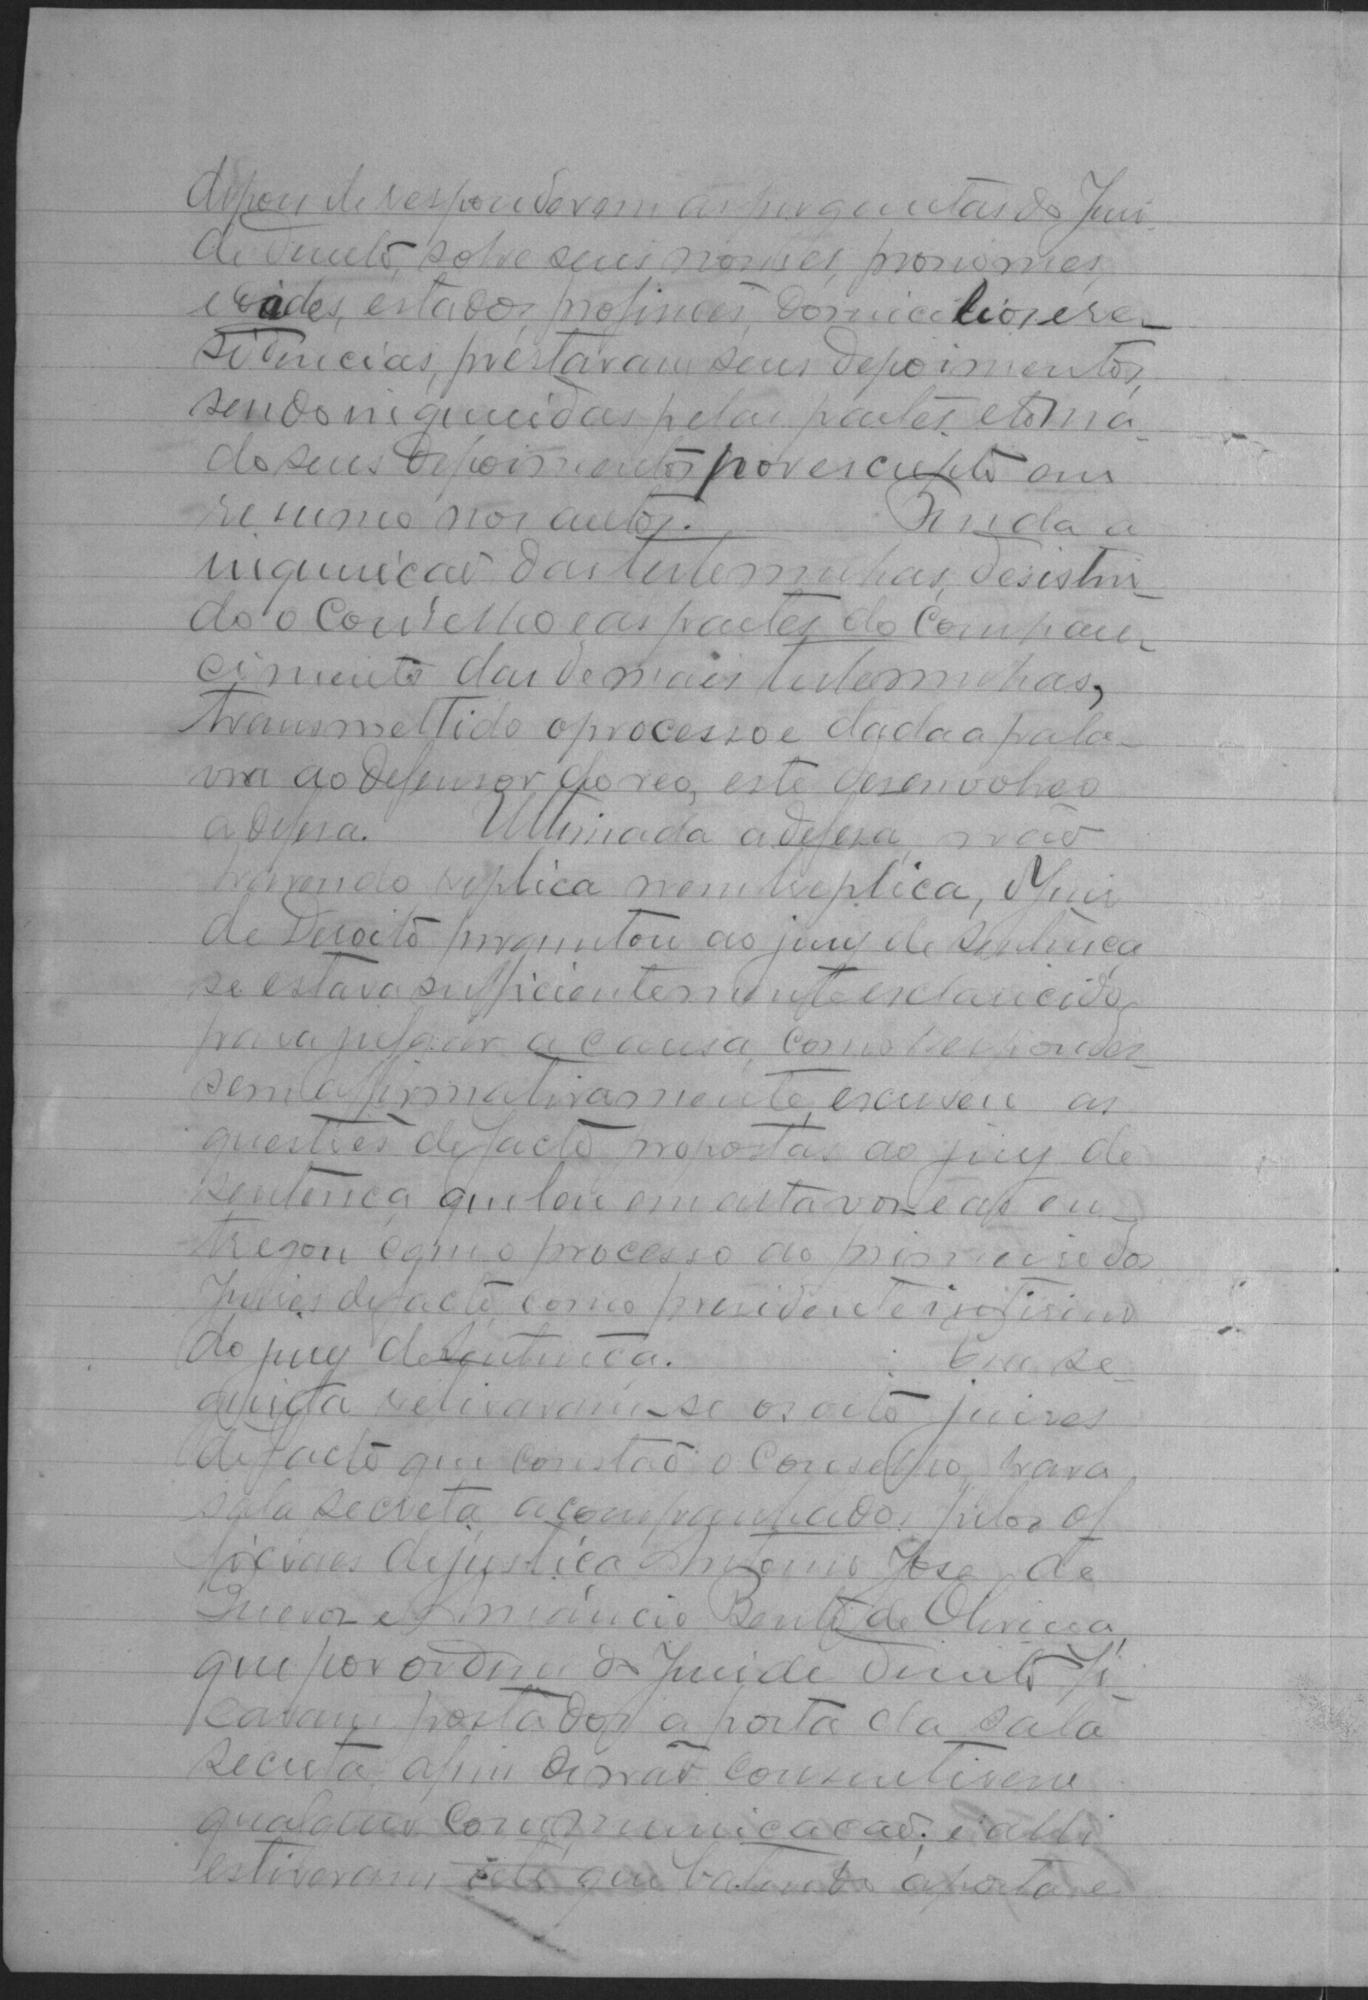 depois de responderem as perguntas do Juiz
de Direito, sobre seus nomes, pronomes,
idades, estados, profissões, domicilios e re-
sidencias, prestaram seus depoimentos,
sendo inqueridas pelas partes, e toma-
do seus depoimentos por escripto em
resumo nos autos. Finda a
inquirição das testemunhas, desistin-
do o Conselho e as partes do compare-
cimento das demais testemunhas,
transmettido o processo e dada a pala-
vra ao defensor do reo, este desenvolveo
a defesa. Ultimada a defesa, não
havendo replica nem treplica, o Juiz
de Direito perguntou ao jury de sentença
se estava sufficientemente esclarecido
para julgar a causa, como respondes-
sem affirmativamente, escreveu as
questões de facto propostas ao jury de
sentença, que leu em alta voz e as en-
tregou com o processo ao primeiro dos
Juizes de facto, como presidente interino
do jury de sentença. Em se-
guida retiraram-se os oito juizes
de facto que constão o Conselho, para
sala secreta, acompanhados pelos of
ficiaes de justiça Antonio José de
e Amancio Bento de Oliveira,
que por ordem do Juiz de Direito fi-
caram postados a porta da sala
secreta, afim de não consentirem
qualquer communicação; e alli
estiveram até que batendo á porta e